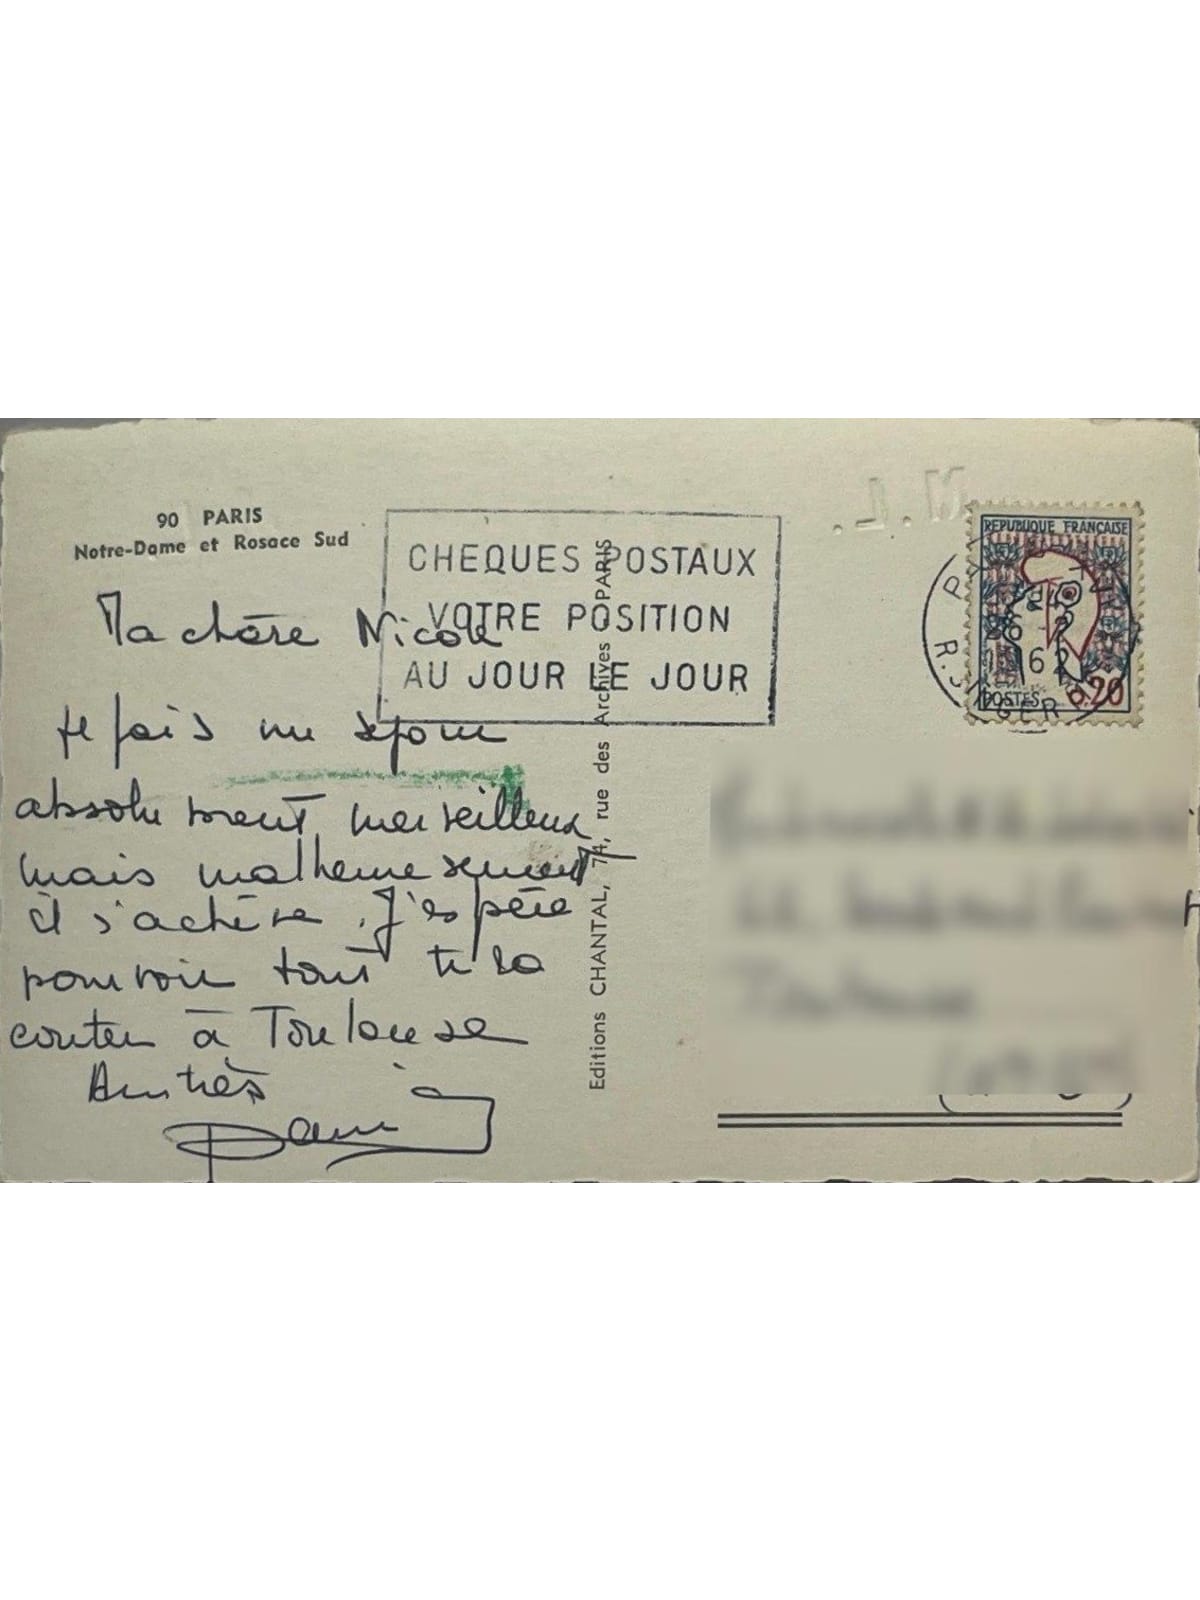 90 PARIS
Notre-Dame et Rosace Sud
CHEQUES POSTAUX
VOTRE POSITION
AU JOUR LE JOUR
M.L.
REPUBLIQUE FRANÇAISE
POSTES 0.20
Ma chère Nicole
Je fais un séjour
absolument merveilleux
mais malheureusement
il s'achève. J'espère
pouvoir tout te ra
conter à Toulouse
Editions CHANTAL, 74, rue des Archives PARIS